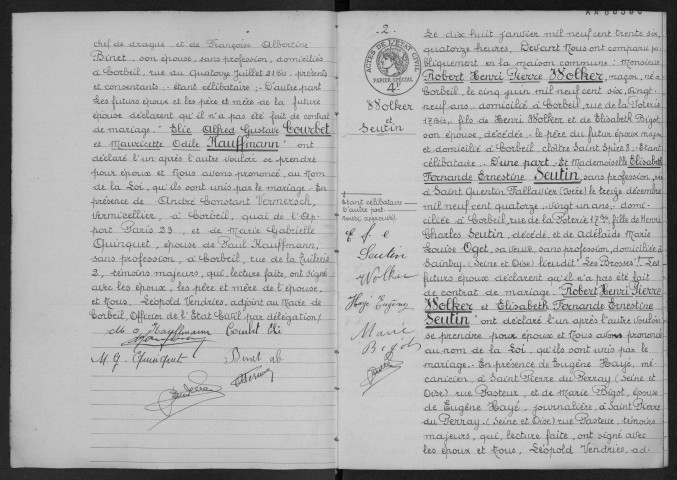 chef de drague et de Françoise Albertine
Binet, son épouse, sans profession, domiciliés
à Corbeil, rue du Quatorze Juillet 21 bis, présents
et consentants.- étant célibataire.- D'autre part.
Les futurs époux et les père et mère de la future
épouse déclarent qu'il n'a pas été fait de contrat
de mariage. Elie Alfred Gustave Courbet
et Mauricette Odile Kauffmann ont
déclaré l'un après l'autre vouloir se prendre
pour époux et Nous avons prononcé, au nom
de la Loi, qu'ils sont unis par le mariage.- En
présence de André Constant Vermersch,
vermicellier, à Corbeil, quai de l'Ap-
port Paris 23, et de Marie Gabrielle
Quinquet, épouse de Paul Kauffmann,
sans profession, à Corbeil, rue de la Tuilerie
2, témoins majeurs, qui, lecture faite, ont signé
avec les époux, les père et mère de l'épouse,
et Nous, Léopold Vendries, adjoint au Maire de
Corbeil, Officier de l'Etat Civil par délégation./.
M O Kauffmann Courbet Eli
M. G. Quinquet Binet ab
2
ACTES DE L'ÉTAT CIVIL
PAPIER SPÉCIAL
4F
Wolker
et
Seutin
Etant célibataire
D'autre part
E f e
Seutin
Wolker
Hayé Eugène
Marie
Bigot
Le dix huit janvier mil neuf cent trente six,
quatorze heures, Devant Nous ont comparu pu-
bliquement en la maison commune : Monsieur
Robert Henri Pierre Wolker, maçon, né à
Corbeil, le cinq juin mil neuf cent six, vingt
neuf ans, domicilié à Corbeil, rue de la Poterie,
17 bis, fils de Henri Wolker et de Elisabeth Bigot,
son épouse, décédée.- le père du futur époux majeur
et domicilié à Corbeil, cloître Saint Spire 8.- Etant
célibataire.- D'une part.- Et Mademoiselle Elisabeth
Fernande Ernestine Seutin, sans profession, née
à Saint Quentin Fallavier (Isère) le treize décembre
mil neuf cent quatorze, vingt un ans, domi-
ciliée à Corbeil, rue de la Poterie 17 bis, fille de Henri
Charles Seutin, décédé, et de Adélaïde Marie
Louise Oget, sa veuve, sans profession, domiciliée à
Saintry, (Seine et Oise) lieudit "Les Brosses". Les
futurs époux déclarent qu'il n'a pas été fait
de contrat de mariage. Robert Henri Pierre
Wolker et Elisabeth Fernande Ernestine
Seutin ont déclaré l'un après l'autre vouloir
se prendre pour époux et Nous avons prononcé
au nom de la Loi, qu'ils sont unis par le
mariage.- En présence de Eugène Hayé, mé-
canicien, à Saint Pierre du Perray (Seine et
Oise) rue Pasteur, et de Marie Bigot, épouse
de Eugène Hayé, journalière, à Saint Pierre
du Perray (Seine et Oise) rue Pasteur, témoins
majeurs, qui, lecture faite, ont signé avec
les époux et Nous, Léopold Vendries, ad-